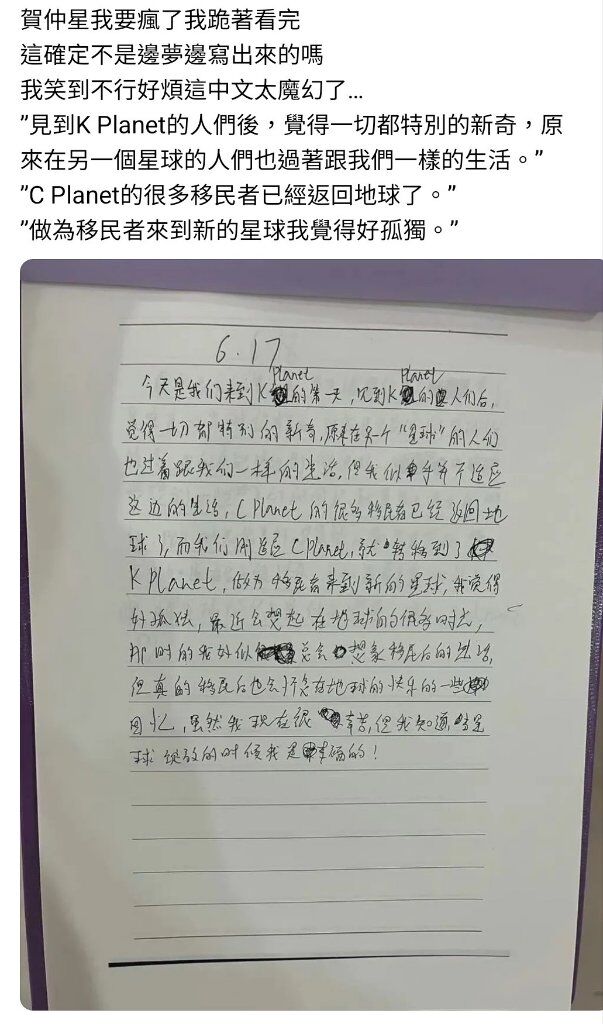 賀仲星我要瘋了我跪著看完
這確定不是邊夢邊寫出來的嗎
我笑到不行好煩這中文太魔幻了...
”見到K Planet的人們後，覺得一切都特別的新奇，原
來在另一個星球的人們也過著跟我們一樣的生活。”
”C Planet的很多移民者已經返回地球了。”
”做為移民者來到新的星球我覺得好孤獨。”
6.17
今天是我们来到K Planet的第一天，见到K Planet的人们后，
觉得一切都特别的新奇，原来在另一个“星球”的人们
也过着跟我们一样的生活，但我似乎并不适应
这边的生活，C Planet的很多移民者已经返回地
球了，而我们刚适应C Planet，就转移到了
K Planet，做为移民者来到新的星球，我觉得
好孤独，最近会想起在地球的很多时光，
那时的我好似总会想象移民后的生活，
但真的移民后也会怀念在地球的快乐的一些
回忆，虽然我现在很辛苦，但我知道，星
球绽放的时候我是幸福的！